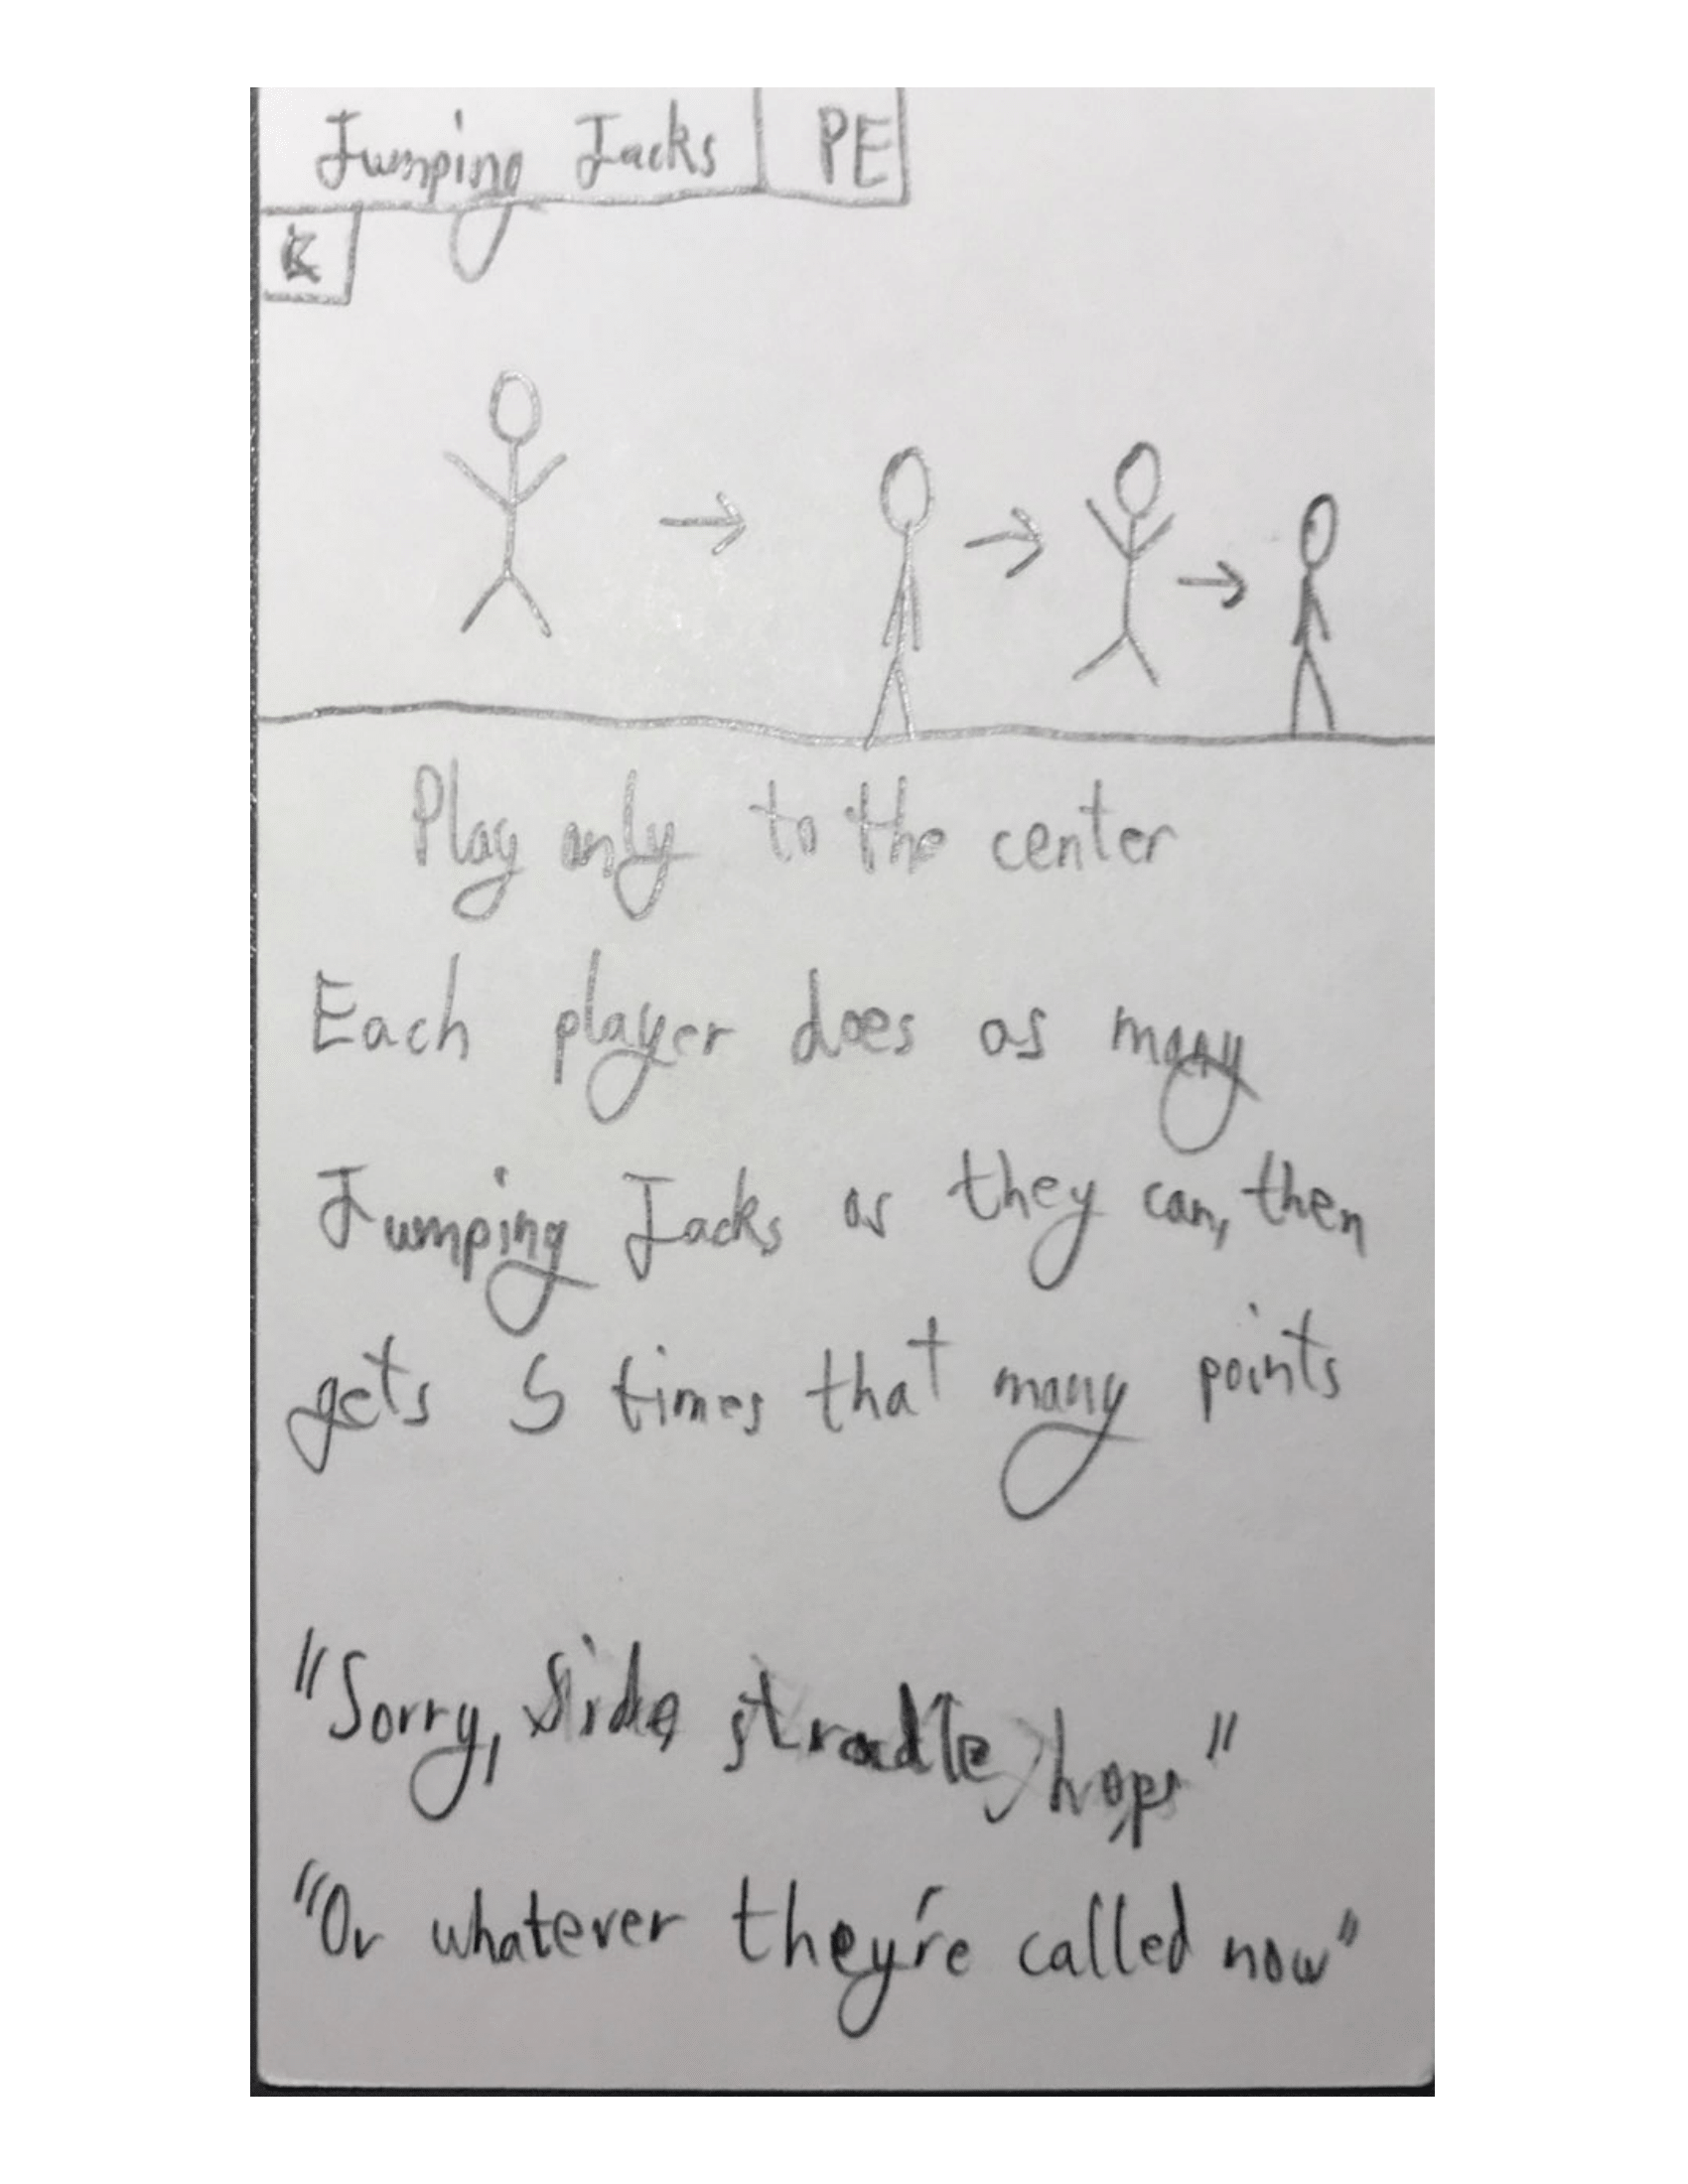 Jumping Jacks PE
K
Play only to the center
Each player does as many
Jumping Jacks as they can, then
gets 5 times that many points
"Sorry, Side stradle hops"
"Or whatever they're called now"